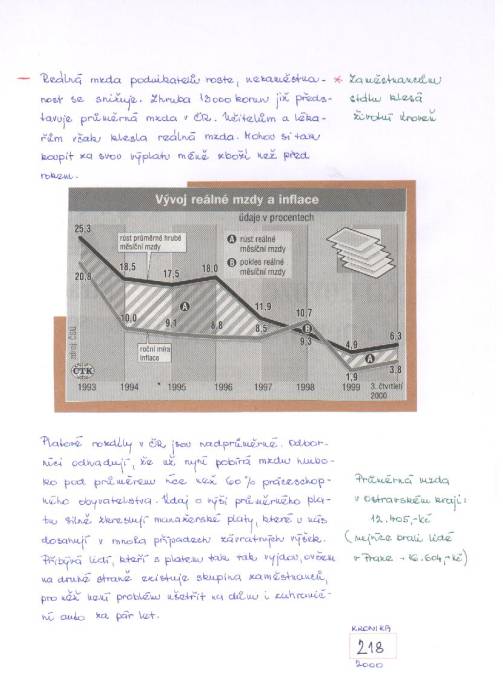 Reálná mzda podnikatelů roste, nezaměstna-
nost se snižuje. Zhruba 13000 korun již předs-
tavuje průměrná mzda v ČR. Učitelům a léka-
řům však klesla reálná mzda. Mohou si tak
koupit za svou výplatu méně zboží než před
rokem.
* Zaměstnancům
státu klesá
životní úroveň
Vývoj reálné mzdy a inflace
údaje v procentech
růst průměrné hrubé
měsíční mzdy
A růst reálné
měsíční mzdy
B pokles reálné
měsíční mzdy
25,3
18,5
17,5
18,0
11,9
10,7
4,9
6,3
20,8
10,0
9,1
8,8
8,5
9,3
1,9
3,8
A
B
A
roční míra
inflace
zdroj ČSÚ
ČTK
1993 1994 1995 1996 1997 1998 1999 3. čtvrtletí
2000
Platové rozdíly v ČR jsou nadprůměrné. Odbor-
níci odhadují, že už nyní pobírá mzdu hlubo-
ko pod průměrem více než 60% práceschop-
ného obyvatelstva. Údaj o výši průměrného pla-
tu silně zkreslují manažerské platy, které u nás
dosahují v mnoha případech závratných výšek.
Přibývá lidí, kteří s platem tak tak vyjdou, ovšem
na druhé straně existuje skupina zaměstnanců,
pro něž není problém ušetřit na dům i zahranič-
ní auto za pár let.
Průměrná mzda
v ostravském kraji:
12.405,-Kč
(nejvíce brali lidé
v Praze - 16.604,-Kč)
KRONIKA
218
2000